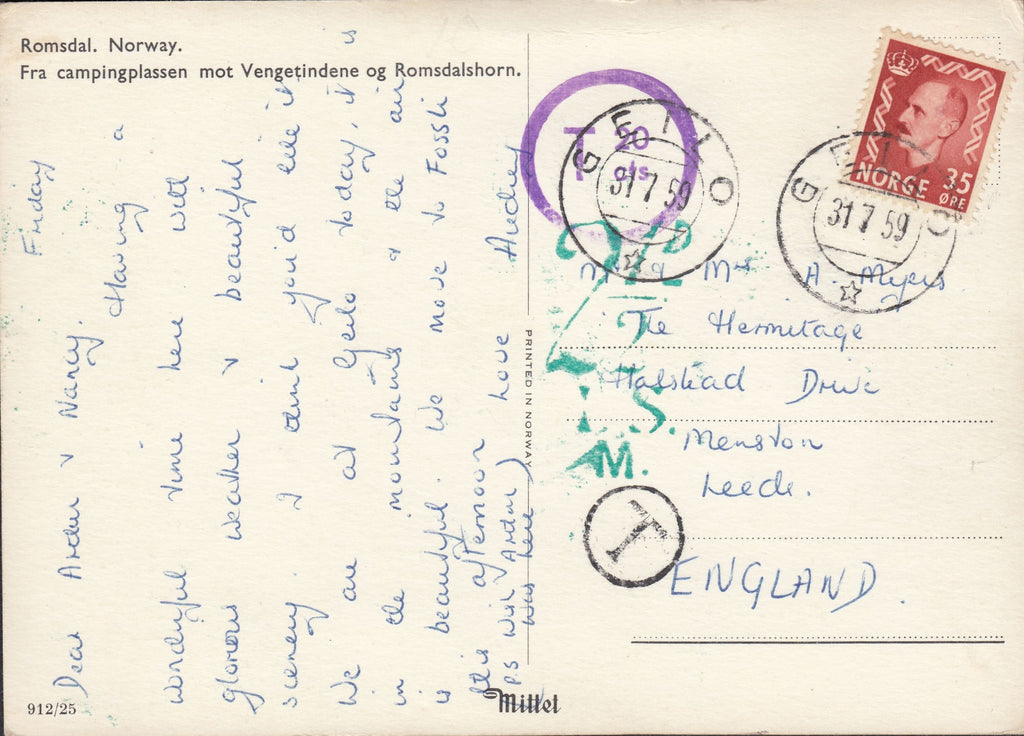 Romsdal. Norway.
Fra campingplassen mot Vengetindene og Romsdalshorn.
Friday
Dear Arthur & Nancy.
Having a
wonderful time here with
glorious weather & beautiful
scenery. I think you'd like it
We are at Geilo today, it is
in the mountains & the air
is beautiful. We move to Fossli
this afternoon Love Audrey
PS Wish Arthur
was here)
912/25
Mittet
PRINTED IN NORWAY
T 20 cts
GEILO
31 7 59
GEILO
31 7 59
NORGE 35
ØRE
Mr & Mrs A. Myers
The Hermitage
Halstead Drive
Menston
Leeds.
ENGLAND.
2½D
I.S.
M.
T